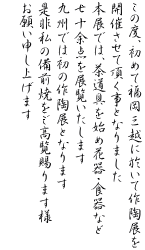 この度、初めて福岡三越に於いて作陶展を
開催させて頂く事となりました
本展では、茶道具を始め花器・食器など
七十余点を展覧いたします
九州では初の作陶展となります
是非私の備前焼をご高覧賜ります様
お願い申し上げます